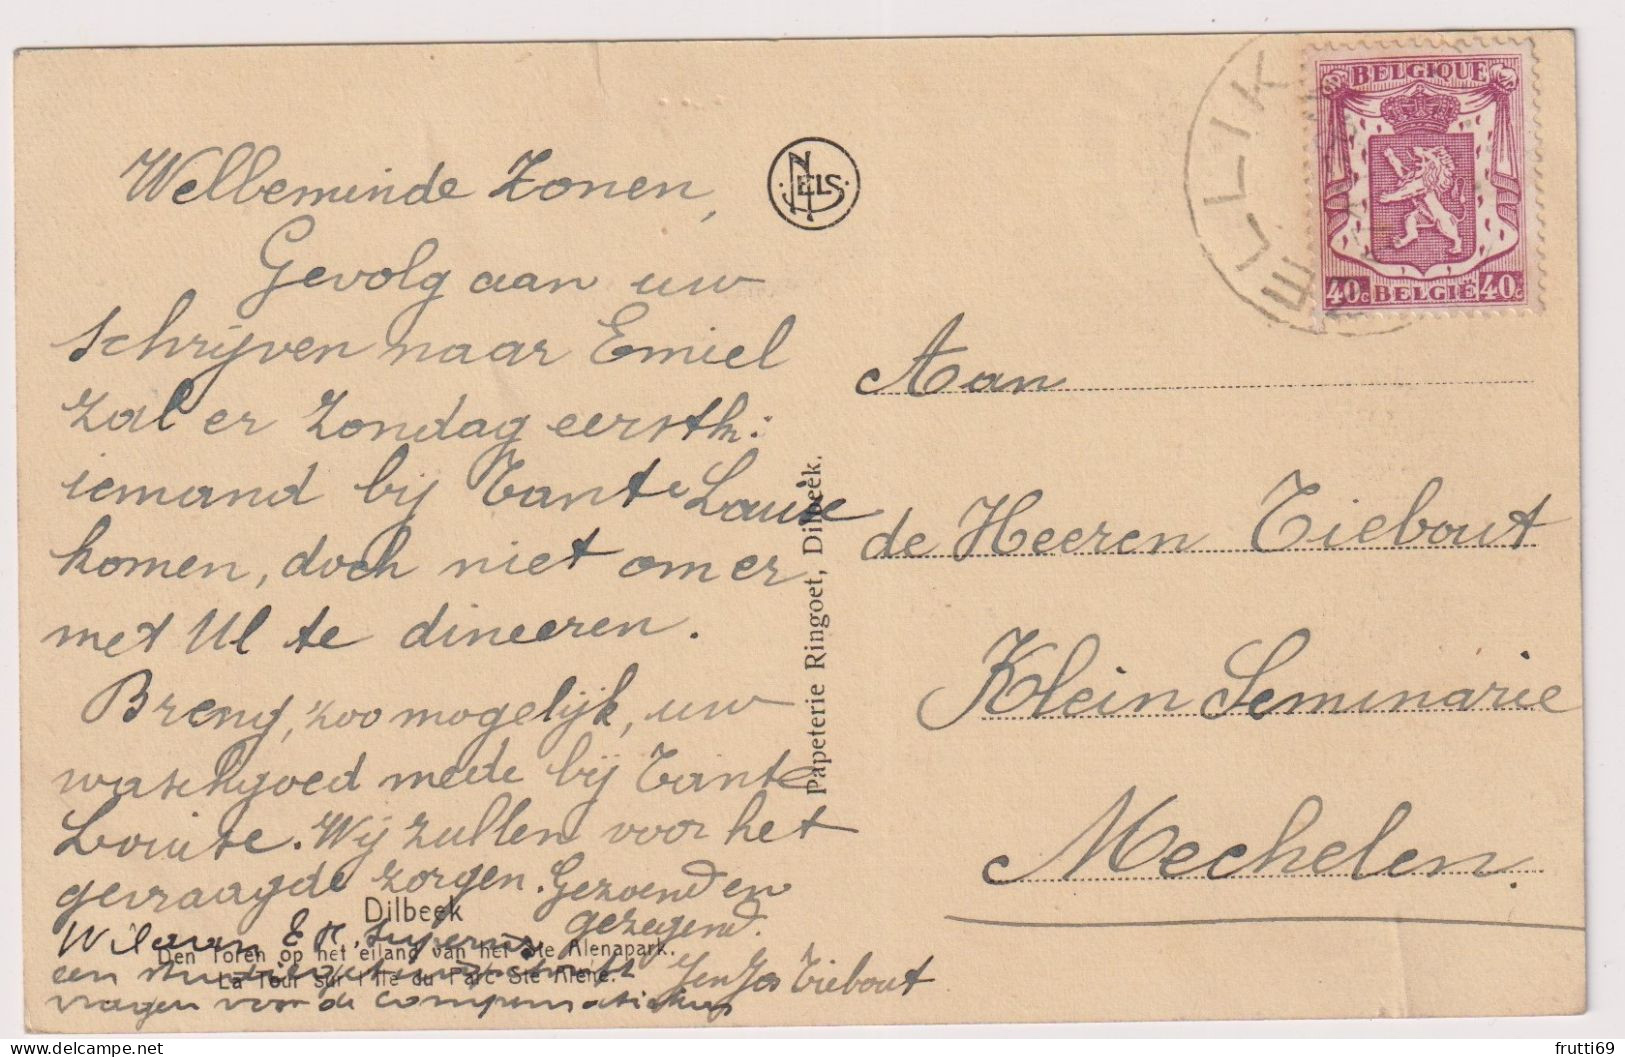 Welbeminde Zonen,
Gevolg aan uw
schrijven naar Emiel
zal er Zondag eerstk:
iemand bij Tante Louise
komen, doch niet om er
met Ul te dineeren.
Breng, zoo mogelijk, uw
waschgoed mede bij Tante
Louise. Wij zullen voor het
gevraagde zorgen. Gezoend en
gezegend.
Jen Jos Tiebout
Wil aan E. H.
een
vragen voor de
Dilbeek
Den Toren op het eiland van het Ste Alenapark.
La Tour sur l'Ile du Parc Ste Alène.
NELS
Papeterie Ringoet, Dilbeek.
ELLIK
BELGIQUE
40c BELGIË 40c
Aan
de Heeren Tiebout
Klein Seminarie
Mechelen.
frutti69
delcampe.net